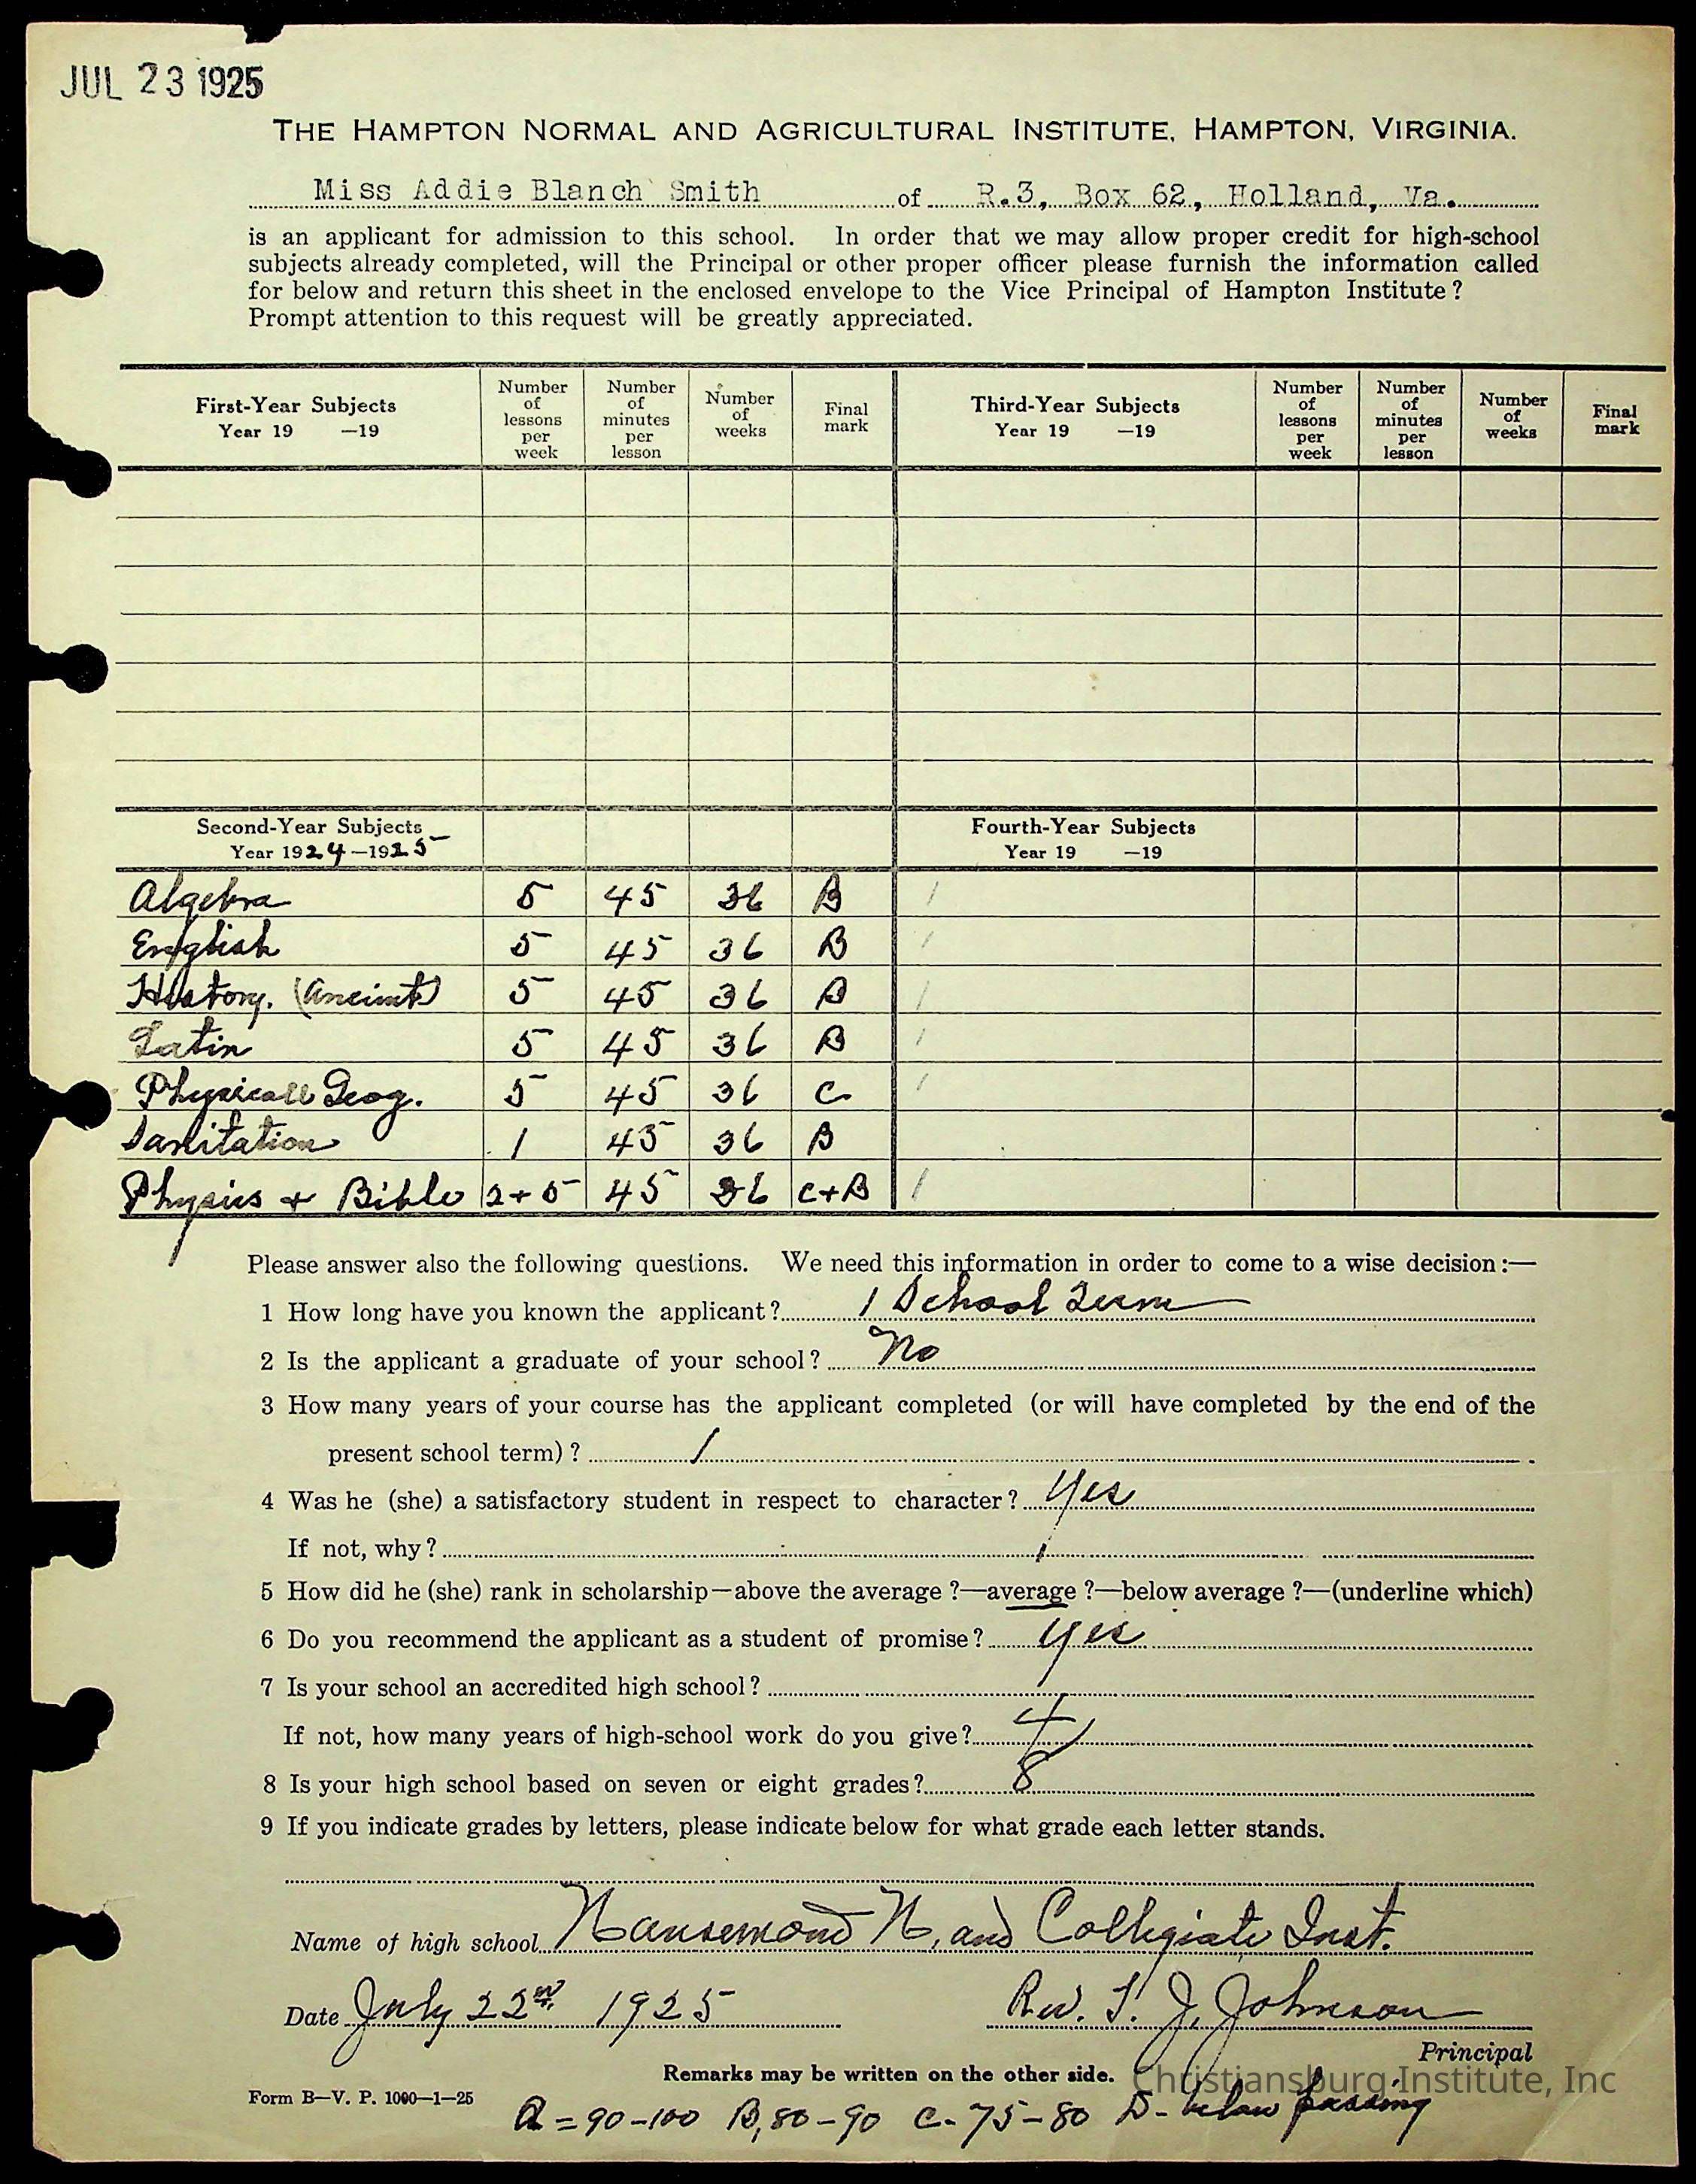 JUL 23 1925
THE HAMPTON NORMAL AND AGRICULTURAL INSTITUTE, HAMPTON, VIRGINIA.
Miss Addie Blanch Smith of R.3, Box 62, Holland, Va.
is an applicant for admission to this school. In order that we may allow proper credit for high-school
subjects already completed, will the Principal or other proper officer please furnish the information called
for below and return this sheet in the enclosed envelope to the Vice Principal of Hampton Institute?
Prompt attention to this request will be greatly appreciated.
First-Year Subjects Year 19 —19 Number of lessons per week Number of minutes per lesson Number of weeks Final mark Third-Year Subjects Year 19 —19 Number of lessons per week Number of minutes per lesson Number of weeks Final mark
Second-Year Subjects Fourth-Year Subjects
Year 1924—1925 Year 19 —19
Algebra 5 45 36 B /
English 5 45 36 B /
History. (Ancient) 5 45 36 B /
Latin 5 45 36 B /
Physicall Geog. 5 45 36 C /
Sanitation 1 45 36 B
Physics + Bible 2+5 45 36 C+B /
Please answer also the following questions. We need this information in order to come to a wise decision:—
1 How long have you known the applicant? 1 School Term
2 Is the applicant a graduate of your school? No
3 How many years of your course has the applicant completed (or will have completed by the end of the
present school term)? 1
4 Was he (she) a satisfactory student in respect to character? Yes
If not, why?
5 How did he (she) rank in scholarship—above the average?—average?—below average?—(underline which)
6 Do you recommend the applicant as a student of promise? Yes
7 Is your school an accredited high school?
If not, how many years of high-school work do you give? 4
8 Is your high school based on seven or eight grades? 8
9 If you indicate grades by letters, please indicate below for what grade each letter stands.
Name of high school Nansemond N, and Collegiate Inst.
Date July 22nd, 1925 Rev. T. J. Johnson
Principal
Remarks may be written on the other side.
Christiansburg Institute, Inc
Form B—V. P. 1000—1—25
A = 90-100 B, 80-90 C-75-80 D- below passing